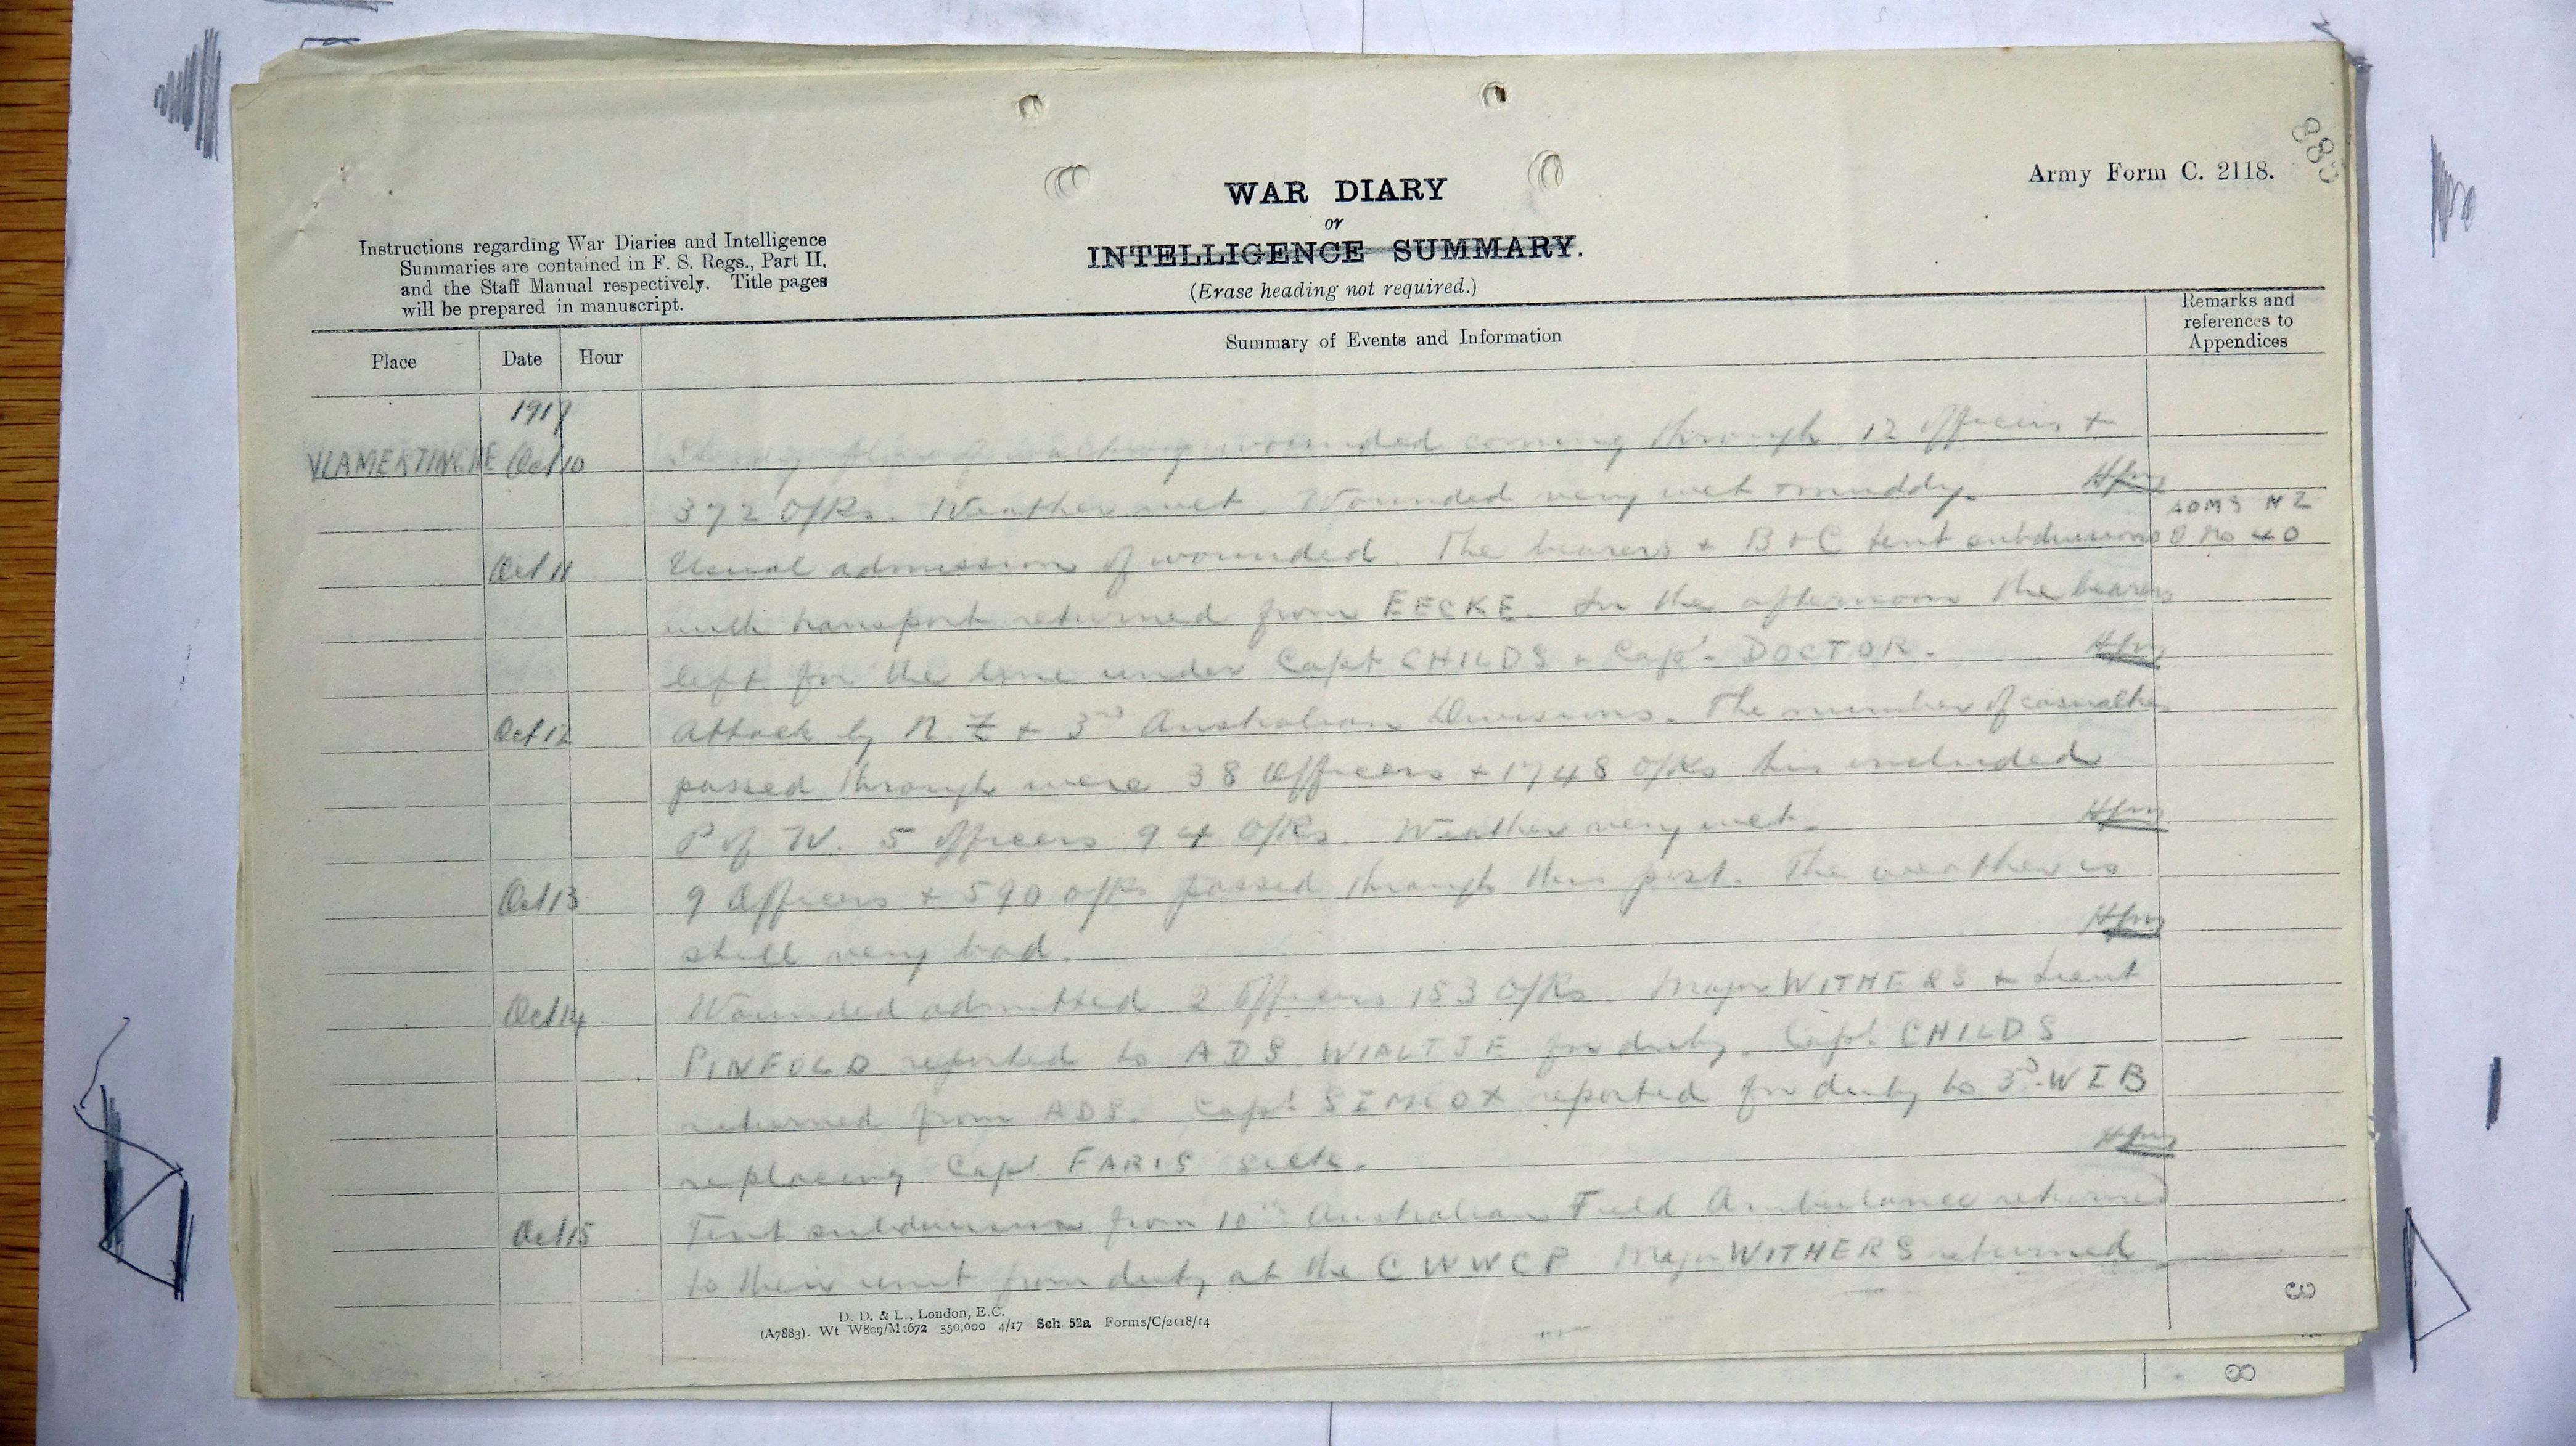 883
Army Form C. 2118.
WAR DIARY
or
INTELLIGENCE SUMMARY.
(Erase heading not required.)
Instructions regarding War Diaries and Intelligence
Summaries are contained in F. S. Regs., Part II.
and the Staff Manual respectively. Title pages
will be prepared in manuscript.
Place Date Hour Summary of Events and Information Remarks and references to Appendices
1917
VLAMERTINGHE Oct 10 Steady flow of walking wounded coming through 12 officers +
372 O/Rs. Weather wet. Wounded very wet + muddy.
ADMS NZ
Oct 11 Usual admission of wounded. The bearers + B + C tent subdivisions O No 40
with transport returned from EECKE. In the afternoon the bearers
left for the line under Capt CHILDS + Capt. DOCTOR.
Oct 12 Attack by N.Z + 3rd Australian Divisions. The number of casualties
passed through were 38 Officers + 1748 O/Rs this included
P of W. 5 officers 94 O/Rs. Weather very wet.
Oct 13 9 Officers + 590 O/Rs passed through this post. The weather is
still very bad.
Oct 14 Wounded admitted 2 Officers 153 O/Rs. Major WITHERS + Lieut
PINFOLD reported to ADS WIALTJE for duty. Capt. CHILDS
returned from ADS. Capt. SIMCOX reported for duty to 3rd W I B
replacing Capt. FARIS sick.
Oct 15 Tent subdivision from 10th Australian Field Ambulance returned
to their unit from duty at the C W W C P Major WITHERS returned
D. D. & L., London, E.C.
(A7883). Wt W809/M1672 350,000 4/17 Sch 52a Forms/C/2118/14
3
8